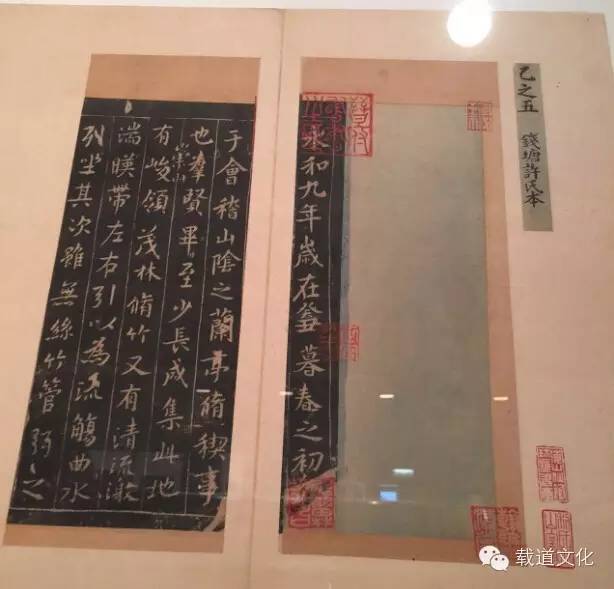 乙之五 錢塘許氏本
永和九年歲在癸丑暮春之初
于會稽山陰之蘭亭脩稧事
也羣賢畢至少長咸集此地
有崇山峻領茂林脩竹又有清流激
湍暎帶左右引以為流觴曲水
列坐其次雖無絲竹管弦之
载道文化